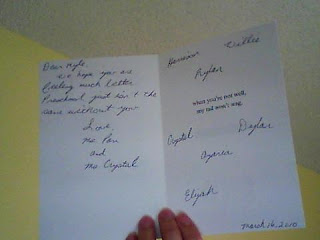 Dear Kyle,
we hope you are
feeling much better
Preschool just isn't the
same without you
Love,
Ms Pen
and
Ms Crystal
Rylan
when you're not well,
my tail won't wag.
Crystal
Daylan
Elijah
March 16, 2010